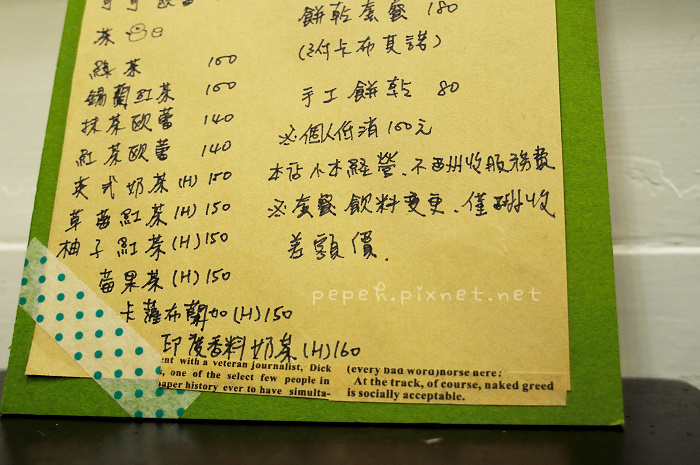 可可歐蕾
茶
綠茶 100
錫蘭紅茶 100
抹茶歐蕾 140
紅茶歐蕾 140
英式奶茶(H) 150
草莓紅茶(H) 150
柚子紅茶(H) 150
莓果茶(H) 150
卡薩布蘭加(H) 150
印度香料奶茶(H) 160
餅乾套餐 180
(附卡布其諾)
手工餅乾 80
※個人低消100元
本店小本經營、不酌收服務費
※套餐飲料變更、僅酌收
差額價.
pepeh.pixnet.net
ent with a veteran journalist, Dick
s, one of the select few people in
paper history ever to have simulta-
(every bad word)horse here?
At the track, of course, naked greed
is socially acceptable.